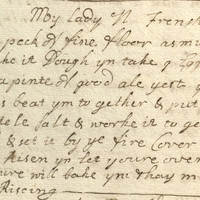 My Lady N French
peck of fine floor as m
ke it Dough yn take 9
a pinte of good ale yest 
s beat ym to gether & put
le salt & worke it to ge
& set it by ye fire Cover
Risen yn let youre oven
ure will bake ym thay m
Riseing